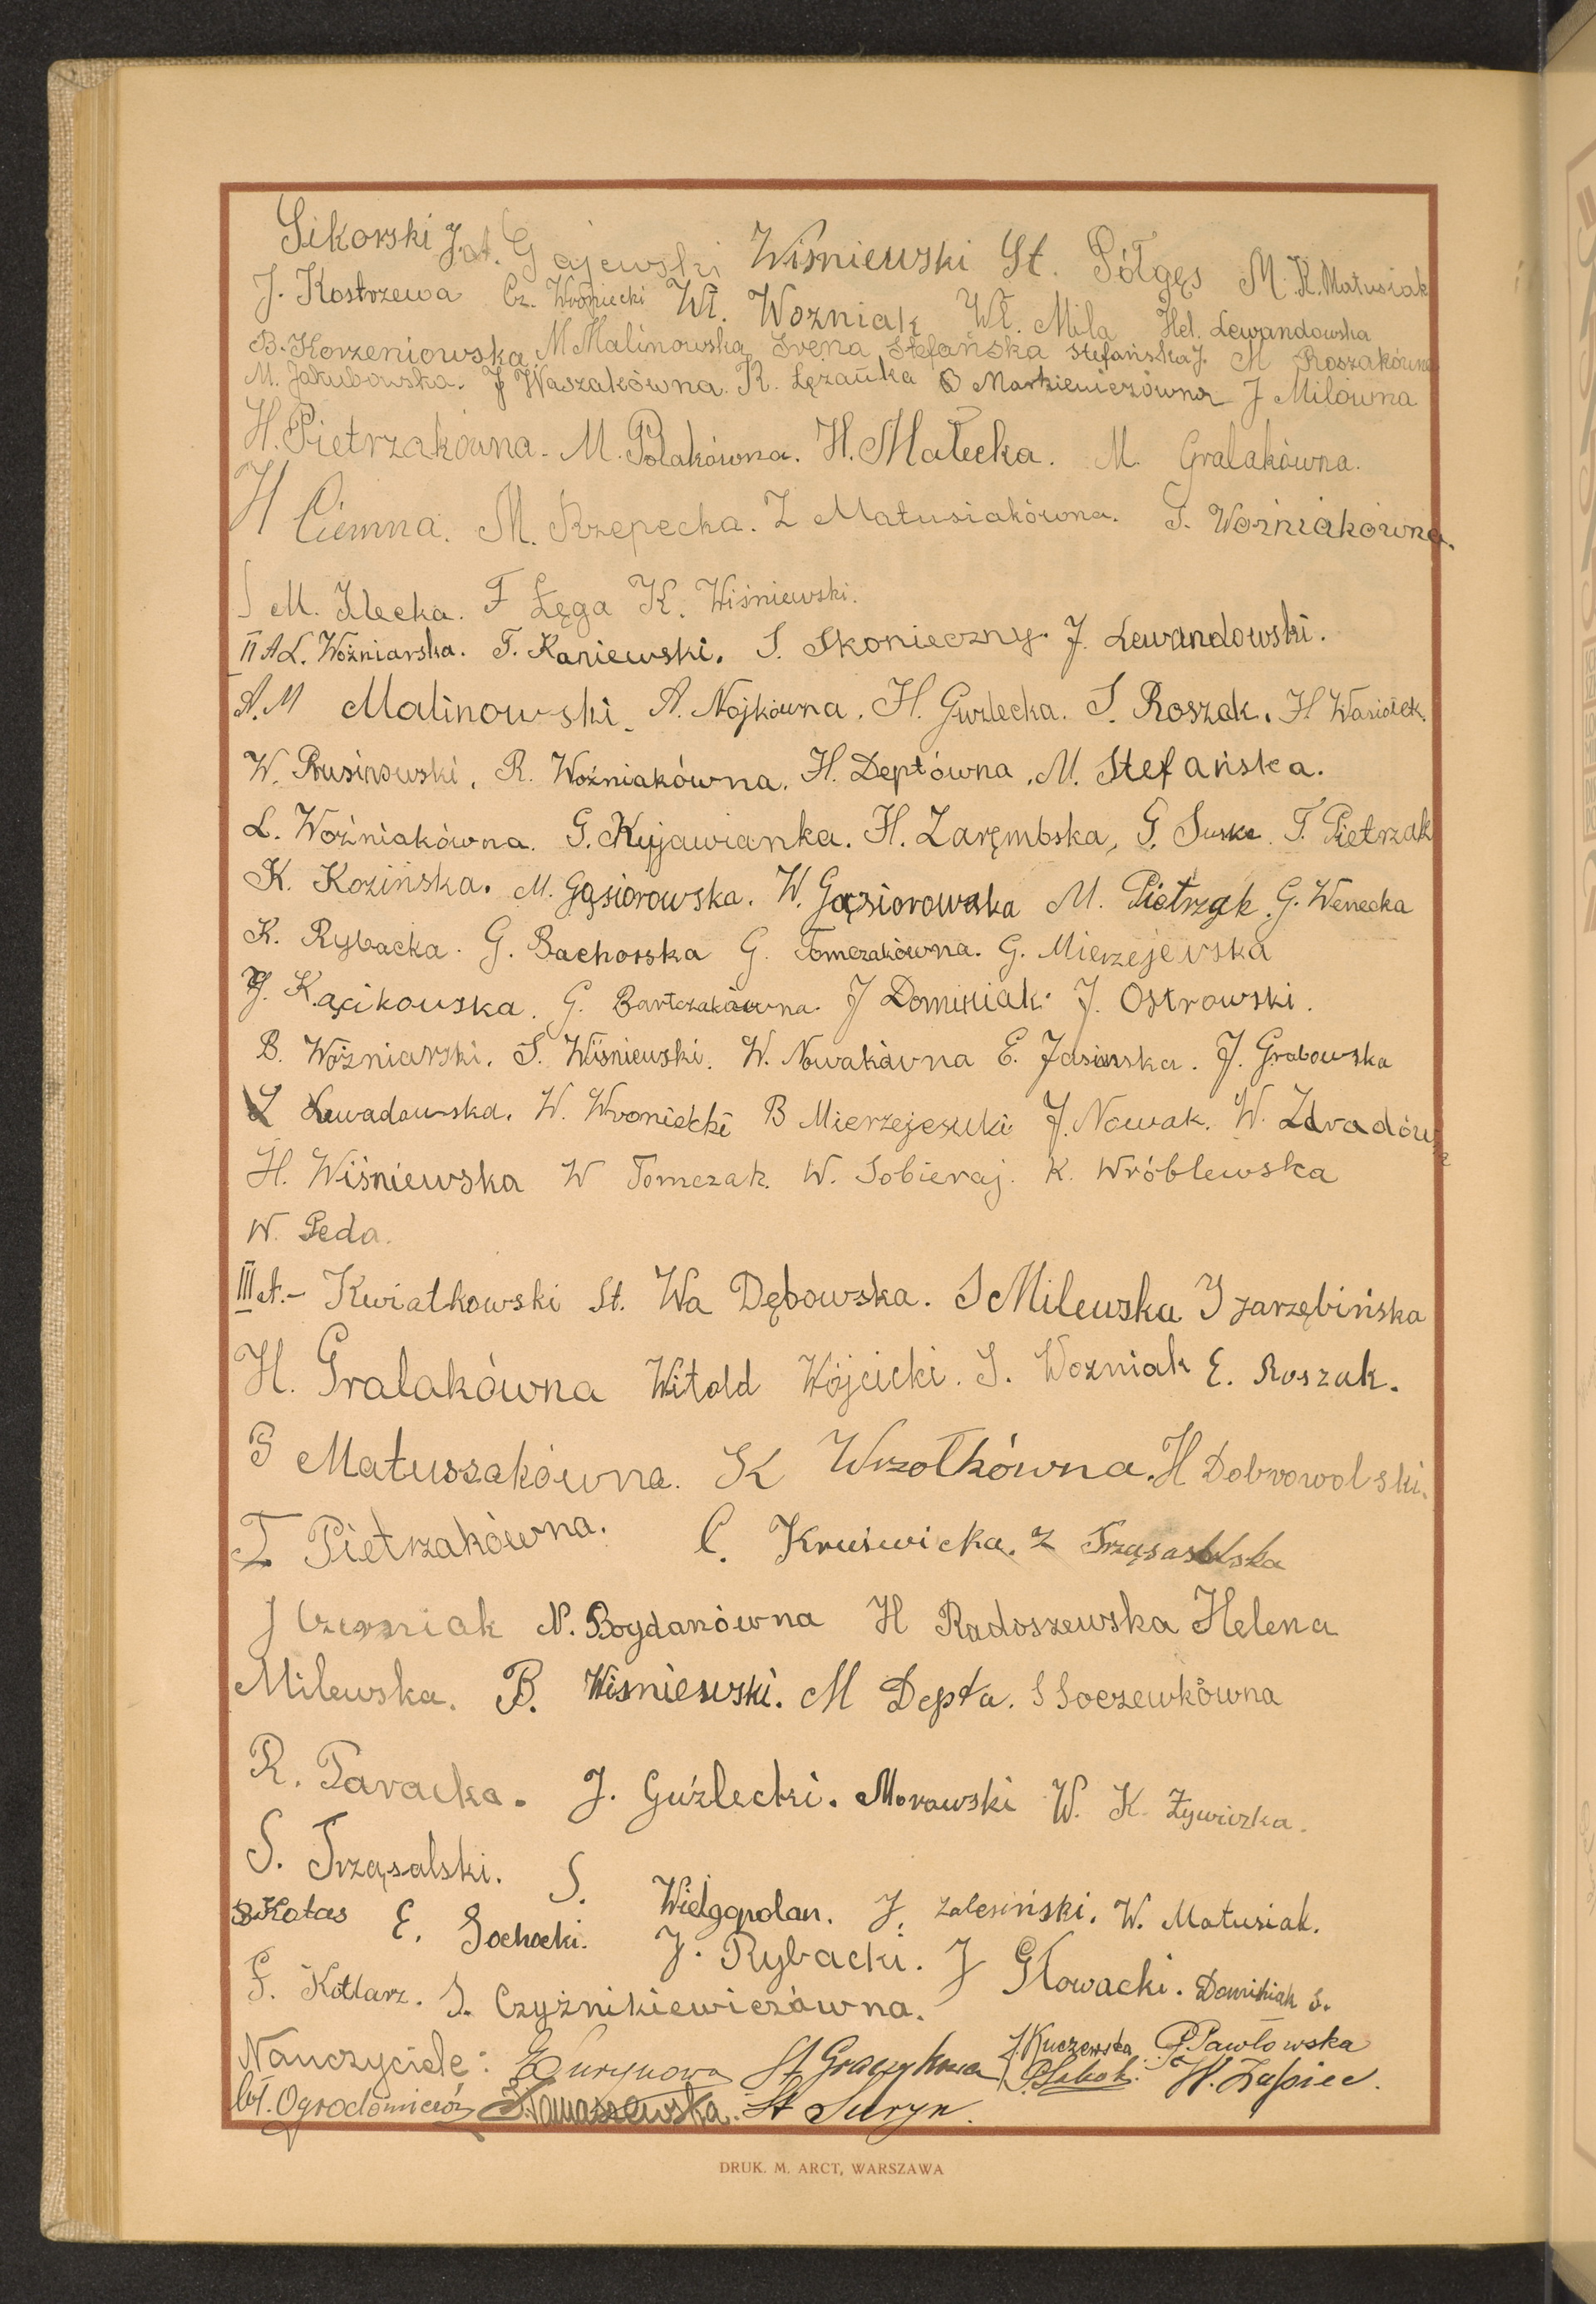 Sikorski J. St. Gajewski Wiśniewski St. Półgęs M. K. Matusiak
J. Kostrzewa Cz. Wroniecki Wł. Wozniak Wł. Mila Hel. Lewandowska
B. Korzeniowska M Malinowska Irena Stefańska Stefańska J. M Roszakówna
M. Jakubowska. J Waszakówna. R. Łężańka B Markiewiczówna J Milówna
H. Pietrzakówna. M. Polakówna. H. Małecka. M. Gralakówna.
H Ciemna. M. Rzepecka. Z Matusiakówna. S. Woźniakówna.
M. Ilecka. F Łęga K. Wiśniewski.
II A L. Woźniarska. T. Kaniewski. S. Skonieczny. J. Lewandowski.
A. M Malinowski. A. Nojkówna. H. Guzlecka. S. Roszak. H Wasiołek.
W. Prusinowski. R. Woźniakówna. H. Deptówna. M. Stefańska.
L. Woźniakówna. G. Kujawianka. H. Zarębmska, G. Suska. T. Pietrzak
K. Kozińska. M. Gąsiorowska. W. Gąsiorowska M. Pietrzak. G. Wenecka
K. Rybacka. G. Bachorska G. Tomczakówna. G. Mierzejewska
J. Kącikowska. G. Bartczakówna. J Dominiak. J. Ostrowski.
B. Woźniarski. S. Wiśniewski. W. Nowakówna E. Jasińska. J. Grabowska
L Lewadowska. W. Wroniecki B Mierzejewski J. Nowak. W. Zdradówna
H. Wiśniewska W Tomczak. W. Sobieraj. K. Wróblewska
W. Peda.
III A.- Kwiatkowski St. Wa Dębowska. S Milewska I Jarzębińska
H. Gralakówna Witold Wójcicki. S. Wozniak E. Roszak.
S Matuszakówna. K Wrzołkówna. H Dobrowolski.
T. Pietrzakówna. C. Kruświcka. Z Trząsalska
J Czerniak N. Bogdanówna H Radoszewska Helena
Milewska. B. Wiśniewski. M Depta. S Soczewkówna
R. Taracka. J. Guźlecki. Morawski W. K. Żywiczka.
S. Trząsalski. S. Wielgopolan. J. Zalesiński. W. Matusiak.
B Kotas E. Sochocki. J. Rybacki. J Głowacki. Dominiak S.
F. Kotlarz. S. Czyżnikiewiczówna.
Nauczyciele: J. Kuczewska P. Pawłowska
St Suryn.
DRUK. M. ARCT, WARSZAWA